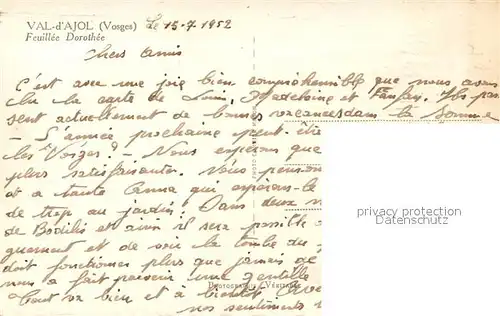 VAL-d'AJOL (Vosges)
Feuillée Dorothée
Le 15-7 1952
Chers Amis
C'est avec une joie bien compréhensible que nous avons
lu la carte de Louis, Madeleine et Fanfan. Ils pas
sent actuellement de bonnes vacances dans la Somme
- L'année prochaine peut-être
les "Vosges" ? - Nous espérons que
plus satisfaisante. Nous pensons
et a tante Anna qui espérons-le
de trop au jardin. Dans deux
de Bodilis et ainsi il sera possible
guement et de voir la tombe du
doit fonctionner plus que jamais de
nous a fait parvenir une gentille
Tout va bien et à bientôt
nos sentiments
PHOTOGRAPHIE VÉRITABLE
privacy protection
Datenschutz